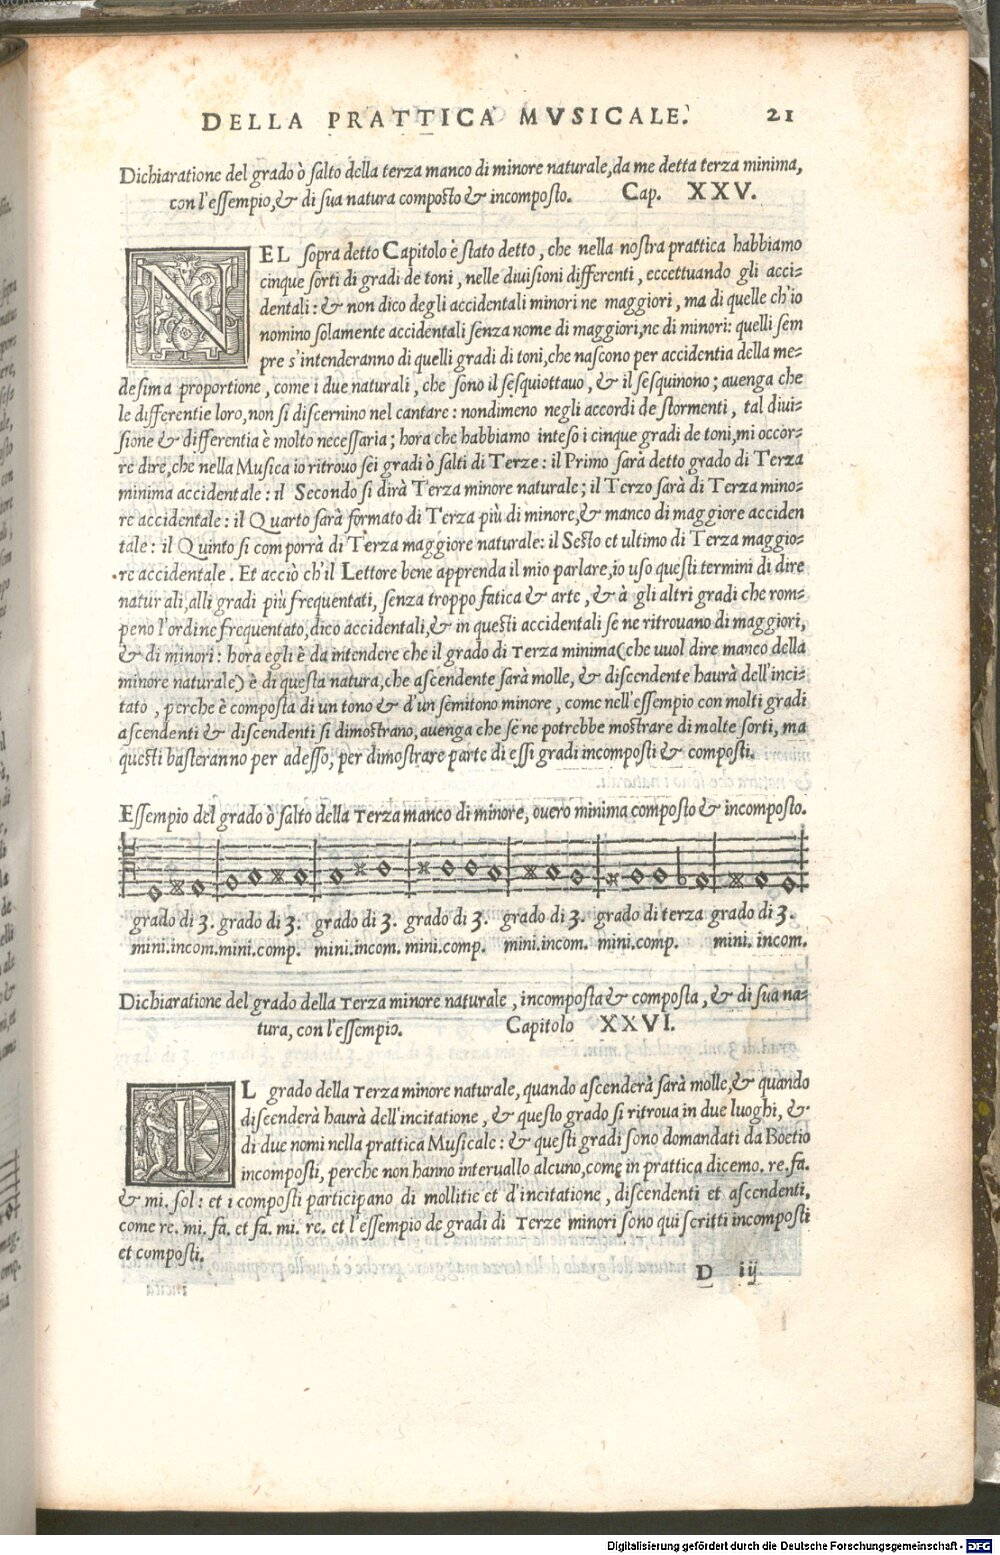 DELLA PRATTICA MVSICALE. 21
Dichiaratione del grado ò salto della terza manco di minore naturale, da me detta terza minima,
con l'essempio, & di sua natura composto & incomposto. Cap. XXV.
NEL sopra detto Capitolo è stato detto, che nella nostra prattica habbiamo
cinque sorti di gradi de toni, nelle diuisioni differenti, eccettuando gli acci-
dentali: & non dico degli accidentali minori ne maggiori, ma di quelle ch'io
nomino solamente accidentali senza nome di maggiori, ne di minori: quelli sem
pre s'intenderanno di quelli gradi di toni, che nascono per accidentia della me-
desima proportione, come i due naturali, che sono il sesquiottauo, & il sesquinono; auenga che
le differentie loro, non si discernino nel cantare: nondimeno negli accordi de stormenti, tal diui-
sione & differentia è molto necessaria; hora che habbiamo inteso i cinque gradi de toni, mi occor-
re dire, che nella Musica io ritrouo sei gradi ò salti di Terze: il Primo sarà detto grado di Terza
minima accidentale: il Secondo si dirà Terza minore naturale; il Terzo sarà di Terza mino-
re accidentale: il Quarto sarà formato di Terza più di minore, & manco di maggiore acciden
tale: il Quinto si comporrà di Terza maggiore naturale: il Sesto et ultimo di Terza maggio-
re accidentale. Et acciò ch'il Lettore bene apprenda il mio parlare, io uso questi termini di dire
naturali, alli gradi più frequentati, senza troppo fatica & arte, & à gli altri gradi che rom-
peno l'ordine frequentato, dico accidentali, & in questi accidentali se ne ritrouano di maggiori,
& di minori: hora egli è da intendere che il grado di Terza minima (che uuol dire manco della
minore naturale) è di questa natura, che ascendente sarà molle, & discendente haurà dell'inci-
tato, perche è composta di un tono & d'un semitono minore, come nell'essempio con molti gradi
ascendenti & discendenti si dimostrano, auenga che se ne potrebbe mostrare di molte sorti, ma
questi basteranno per adesso, per dimostrare parte di essi gradi incomposti & composti.
Essempio del grado ò salto della Terza manco di minore, ouero minima composto & incomposto.
grado di 3. grado di 3. grado di 3. grado di 3. grado di 3. grado di terza grado di 3.
mini.incom. mini.comp. mini.incom. mini.comp. mini.incom. mini.comp. mini. incom.
Dichiaratione del grado della Terza minore naturale, incomposta & composta, & di sua na-
tura, con l'essempio. Capitolo XXVI.
IL grado della Terza minore naturale, quando ascenderà sarà molle, & quando
discenderà haurà dell'incitatione, & questo grado si ritroua in due luoghi, &
di due nomi nella prattica Musicale: & questi gradi sono domandati da Boetio
incomposti, perche non hanno interuallo alcuno, come in prattica dicemo. re. fa.
& mi. sol: et i composti participano di mollitie et d'incitatione, discendenti et ascendenti,
come re. mi. fa. et fa. mi. re. et l'essempio de gradi di Terze minori sono qui scritti incomposti
et composti.
D ij
Digitalisierung gefördert durch die Deutsche Forschungsgemeinschaft - DFG